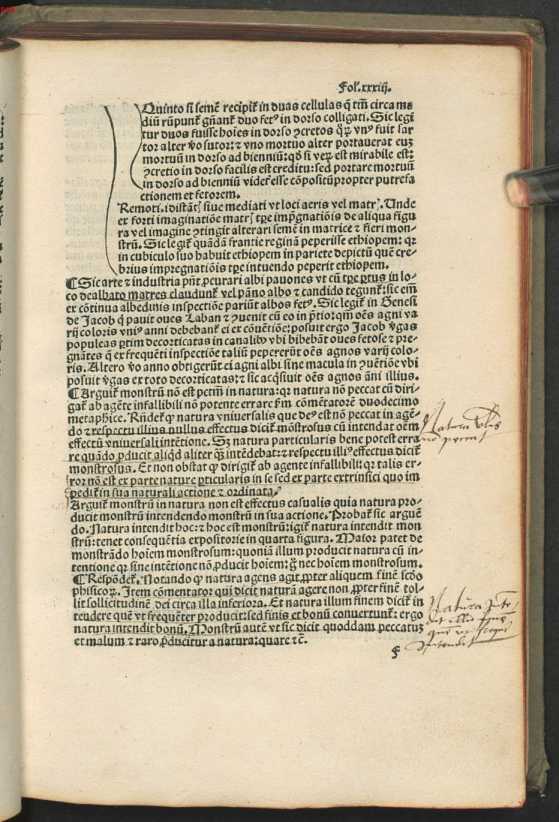 Fol. xxxiij.
Quinto si semẽ recipiť in duas cellulas q̃ tm̃ circa me
diũ rũpunť gñant̃ duo fetꝰ in dorso colligati. Sic legi
tur duos fuisse hoĩes in dorso ꝯcretos qͦꝝ vnꝰ fuit sar
tor alter ṽo sutor: ⁊ vno mortuo alter portauerat euꝫ
mortuũ in dorso ad bienniũ: qď si veꝝ est mirabile est:
ꝯcretio in dorso facilis est creditu: sed portare mortuũ
in dorso ad bienniũ videť esse cõpositũ propter putrefa
ctionem et fetorem.
Remoti. siue mediati vt loci aeris vel matrꝭ. Unde
ex forti imaginatiõe matrꝭ tꝑe impg̃natiõis de aliqua figu
ra vel imagine ꝯtingit alterari semẽ in matrice ⁊ fieri mon-
strũ. Sic legiť quãdã frantie reginã peperisse ethiopem: qꝛ
in cubiculo suo habuit ethiopem in pariete depictũ quẽ cre-
brius impregnatiõis tꝑe intuendo peperit ethiopem.
¶ Sic arte ⁊ industria pñt ꝓcurari albi pauones vt cũ tꝑe ꝑtus in lo-
co dealbato matres claudunť vel pãno albo ⁊ candido tegunť: sic em̃
ex cõtinua albedinis inspectiõe pariũt albos fetꝰ. Sic legiť in Genesi
de Jacob q̃ pauit oues Laban ⁊ ꝯuenit cũ eo in p̃tiorqm̃ oẽs agni va
rij coloris vniꝰ anni debebanť ei ex cõuẽtiõe: posuit ergo Jacob v̓gas
populeas ꝑtim decorticatas in canalibꝰ vbi bibebãt oues fetose ⁊ pre-
gnãtes q̃ ex freq̃uẽti inspectiõe taliũ pepererũt oẽs agnos varij colo-
ris. Altero ṽo anno obtigerũt ei agni albi sine macula in ꝯuẽtiõe vbi
posuit v̓gas ex toto decorticatas: ⁊ sic acq̃siuit oẽs agnos ãni illius.
¶ Arguiť monstrũ nõ est peccm̃ in natura: qꝛ natura nõ peccat cũ diri-
gať ab agẽte infallibili nõ potente errare ẽm cõmẽtatorẽ duodecimo
metaphice. Rñdeť ꝙ natura vniuersalis que deꝰ est nõ peccat in agẽ-
do ⁊ respectu illius nullus effectus diciť mõstrosus cũ intendat oẽm
effectũ vniuersali intẽtione. Sꝫ natura particularis bene potest erra
re quãdo ꝓducit aliqď aliter qͣꝫ intẽdebat: ⁊ respectu illiꝰ effectus diciť
monstrosus. Et non obstat ꝙ dirigiť ab agente infallibili: qꝛ talis er-
ror nõ est ex parte nature ꝑticularis in se sed ex parte extrinseci quo im
pediť in sua naturali actione ⁊ ordinata.
Arguiť monstrũ in natura non est effectus casualis quia natura pro-
ducit monstrũ intendendo monstrũ in sua actione. Probať sic arguẽ
do. Natura intendit hoc: ⁊ hoc est monstrũ: igiť natura intendit mon
strũ: tenet consequẽtia expositorie in quarta figura. Maior patet de
monstrãdo hoĩem monstrosum: quoniã illum producit natura cũ in-
tentione qꝛ sine intẽtione nõ ꝓducit hoĩem: g̊ nec hoĩem monstrosum.
¶ Respõdeť. Notando ꝙ natura agens agit ꝓpter aliquem finẽ scďo
phisicoꝝ. Item cõmentator qui dicit naturã agere non ꝓpter finẽ tol-
lit sollicitudinẽ dei circa illa inferiora. Et natura illum finem diciť in
tendere quẽ vt freq̃uẽter producit: sed finis et bonũ conuertunť: ergo
natura intendit bonũ. Monstrũ autẽ vt sic dicit quoddam peccatuꝫ
et malum ⁊ raro ꝓduciťur a natura: quare ⁊c̃.
f
Natura vl̃is
nõ peccat